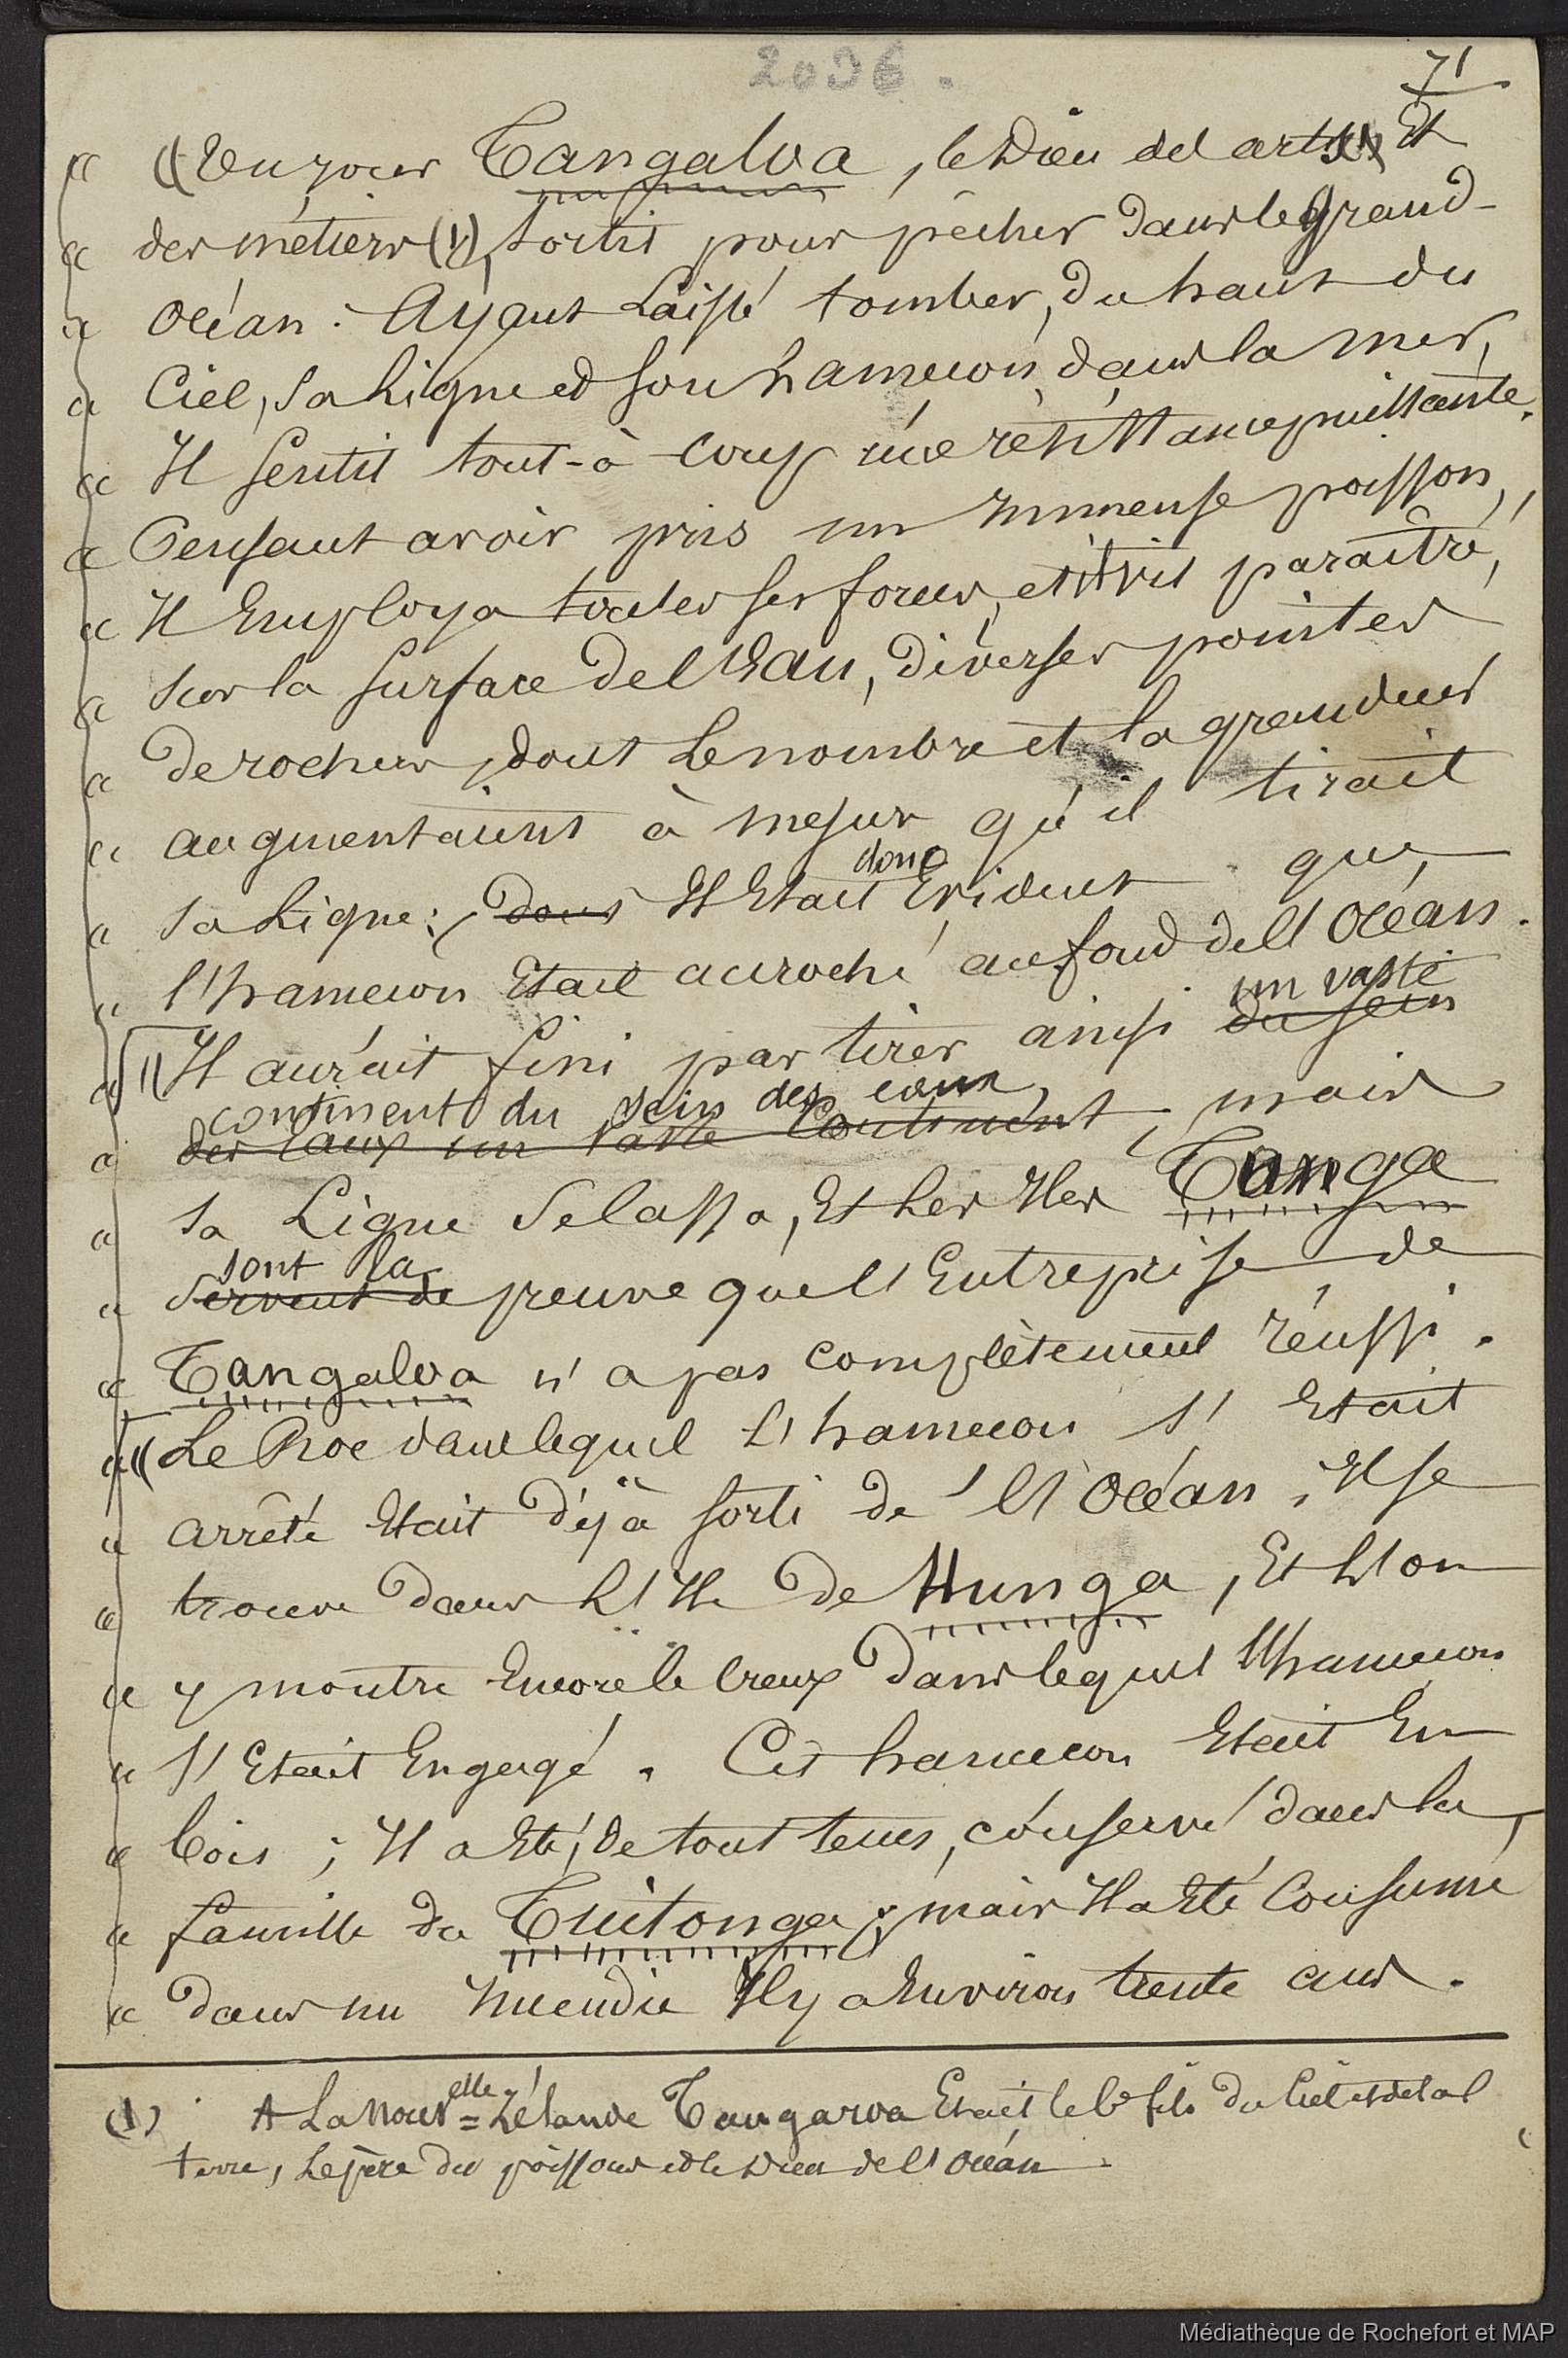 2096.
71
« « Un jour Tangaloa, le Dieu des arts Et
« des métiers (1), sortit pour pêcher dans le grand-
« Océan. Ayant laissé tomber, du haut du
« Ciel, sa ligne et son hameçon, dans la mer,
« Il sentit tout-à-coup une résistance puissante.
« Pensant avoir pris un Immense poisson,
« Il Employa toutes ses forces, et il vit paraître,
« sur la surface de l'Eau, diverses pointes
« de rochers, dont le nombre et la grandeur
« augmentaient à mesure qu'il tirait
« sa ligne: donc Il Etait donc Evident que
« l'hameçon Etait accroché au fond de l'Océan.
« « Il aurait fini par tirer ainsi du sein un vaste
« des Eaux un vaste Continent continent du sein des eaux, mais
« sa Ligne se cassa, Et les Iles Tanga
« servent de sont la preuve que l'Entreprise de
« Tangaloa n'a pas complètement réussi.
« « Le Roc dans lequel l'hameçon s'Etait
« arrêté Etait déjà sorti de l'Océan; Il se
« trouve dans l'Ile de Hunga, Et l'on
« y montre Encore le creux dans lequel l'hameçon
« s'Etait Engagé. Cet hameçon Etait En
« bois; Il a Eté, de tout tems, conservé dans la
« famille du Tuitonga; mais Il a Eté Consumé
« dans un Incendie Il y a Environ trente ans.
(1) A La Nouvelle=Zélande Tangaroa Etait le 6e fils du Ciel et de la
terre, le père des poissons et le Dieu de l'Océan.
Médiathèque de Rochefort et MAP